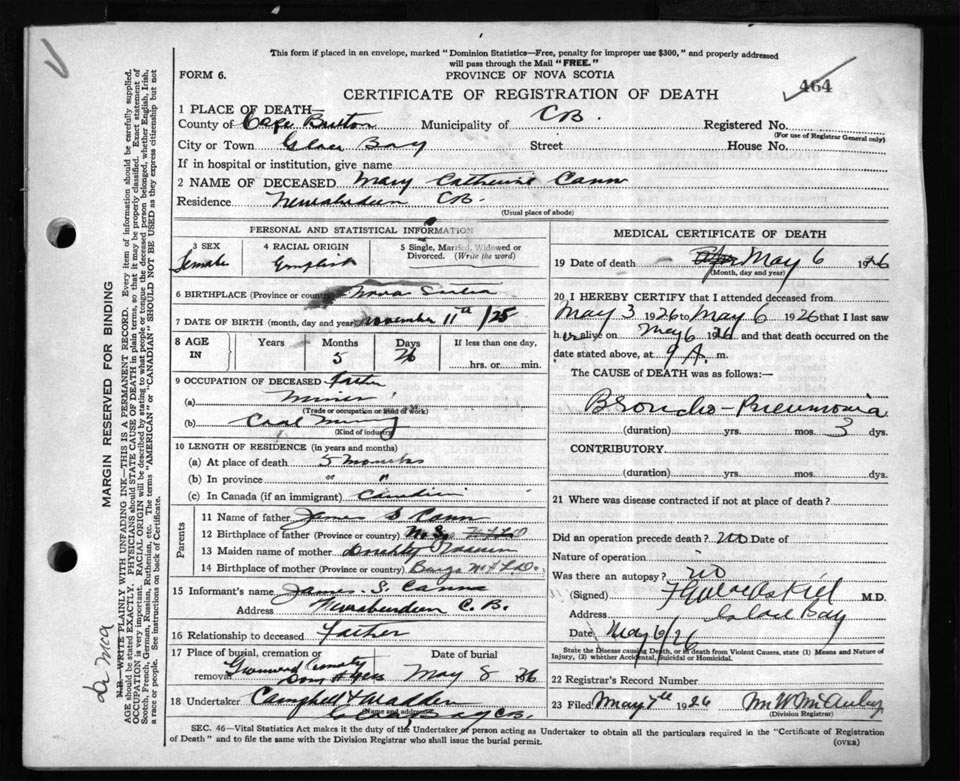 This form if placed in an envelope, marked "Dominion Statistics—Free, penalty for improper use $300," and properly addressed
will pass through the Mail "FREE."
FORM 6.
PROVINCE OF NOVA SCOTIA
464
CERTIFICATE OF REGISTRATION OF DEATH
1 PLACE OF DEATH—
County of Cape Breton Municipality of CB. Registered No.
(For use of Registrar General only)
City or Town Glace Bay Street House No.
If in hospital or institution, give name
2 NAME OF DECEASED Mary Catherine Cann
Residence Newaberdeen CB.
(Usual place of abode)
PERSONAL AND STATISTICAL INFORMATION
3 SEX 4 RACIAL ORIGIN 5 Single, Married, Widowed or
Divorced. (Write the word)
Female English
6 BIRTHPLACE (Province or country) Nova Scotia
7 DATE OF BIRTH (month, day and year) November 11th /25
8 AGE IN Years Months Days If less than one day,
5 26 hrs. or min.
9 OCCUPATION OF DECEASED Father
(a) Miner
(Trade or occupation or kind of work)
(b) Coal Mining
(Kind of industry)
10 LENGTH OF RESIDENCE (in years and months)
(a) At place of death 5 months
(b) In province " "
(c) In Canada (if an immigrant) Canadian
Parents
11 Name of father James S Cann
12 Birthplace of father (Province or country) NFLD
13 Maiden name of mother
14 Birthplace of mother (Province or country) NFLD.
15 Informant's name James. S. Cann
Address Newaberdeen C.B.
16 Relationship to deceased Father
17 Place of burial, cremation or Date of burial
removal Greenwood Cemetery May 8 1926
18 Undertaker Campbell &
(Name and address) Glace Bay CB.
MEDICAL CERTIFICATE OF DEATH
19 Date of death May 6 1926
(Month, day and year)
20 I HEREBY CERTIFY that I attended deceased from
May 3 1926 to May 6 1926 that I last saw
her alive on May 6 1926 and that death occurred on the
date stated above, at 9 A. m.
The CAUSE of DEATH was as follows:—
Broncho-Pneumonia
(duration) yrs. mos. 3 dys.
CONTRIBUTORY.
(duration) yrs. mos. dys.
21 Where was disease contracted if not at place of death?
Did an operation precede death? No Date of
Nature of operation
Was there an autopsy? no
(Signed) M.D.
Address Glace Bay
Date May 6/26
State the Disease causing Death, or in death from Violent Causes, state (1) Means and Nature of
Injury, (2) whether Accidental, Suicidal or Homicidal.
22 Registrar's Record Number
23 Filed May 7th 1926 M. W. McAuley
(Division Registrar)
SEC. 46—Vital Statistics Act makes it the duty of the Undertaker or person acting as Undertaker to obtain all the particulars required in the "Certificate of Registration
of Death" and to file the same with the Division Registrar who shall issue the burial permit.
(OVER)
MARGIN RESERVED FOR BINDING
N.B.—WRITE PLAINLY WITH UNFADING INK—THIS IS A PERMANENT RECORD. Every item of information should be carefully supplied.
AGE should be stated EXACTLY. PHYSICIANS should STATE CAUSE OF DEATH in plain terms, so that it may be properly classified. Exact statement of
OCCUPATION is very important. RACIAL ORIGIN will be described by stating to what people or tongue the deceased person belonged, whether English, Irish,
Scotch, French, German, Russian, Ruthenian, etc. The terms "AMERICAN" or "CANADIAN" SHOULD NOT BE USED as they express citizenship but not
a race or people. See instructions on back of Certificate.